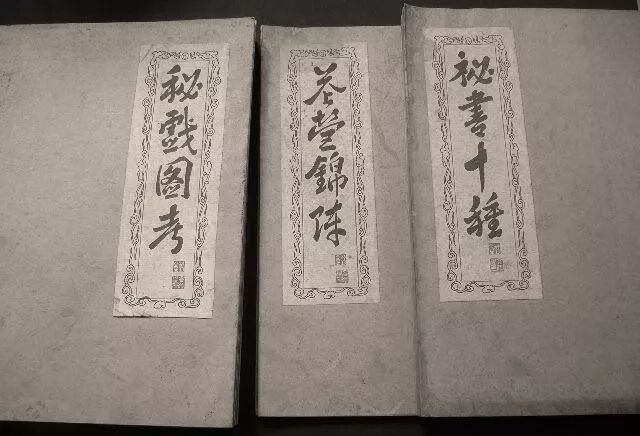 秘戲圖考
花營錦陣
秘書十種